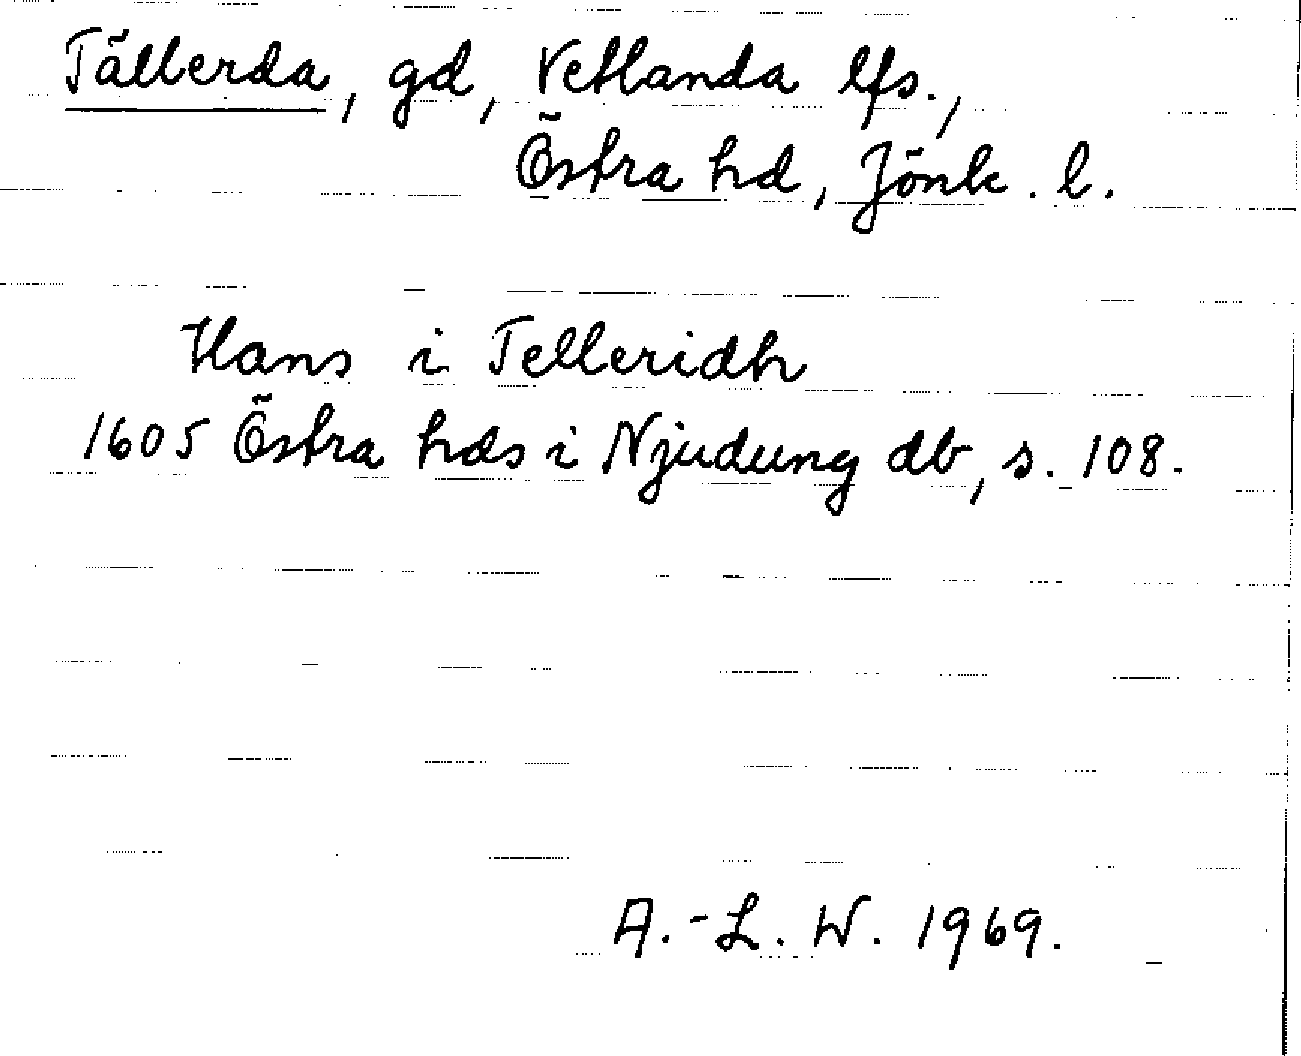 Tällerda, gd, Vetlanda lfs.,
Östra hd, Jönk. l.
Hans i Telleridh
1605 Östra hds i Njudung db, s. 108.
A.-L. W. 1969.